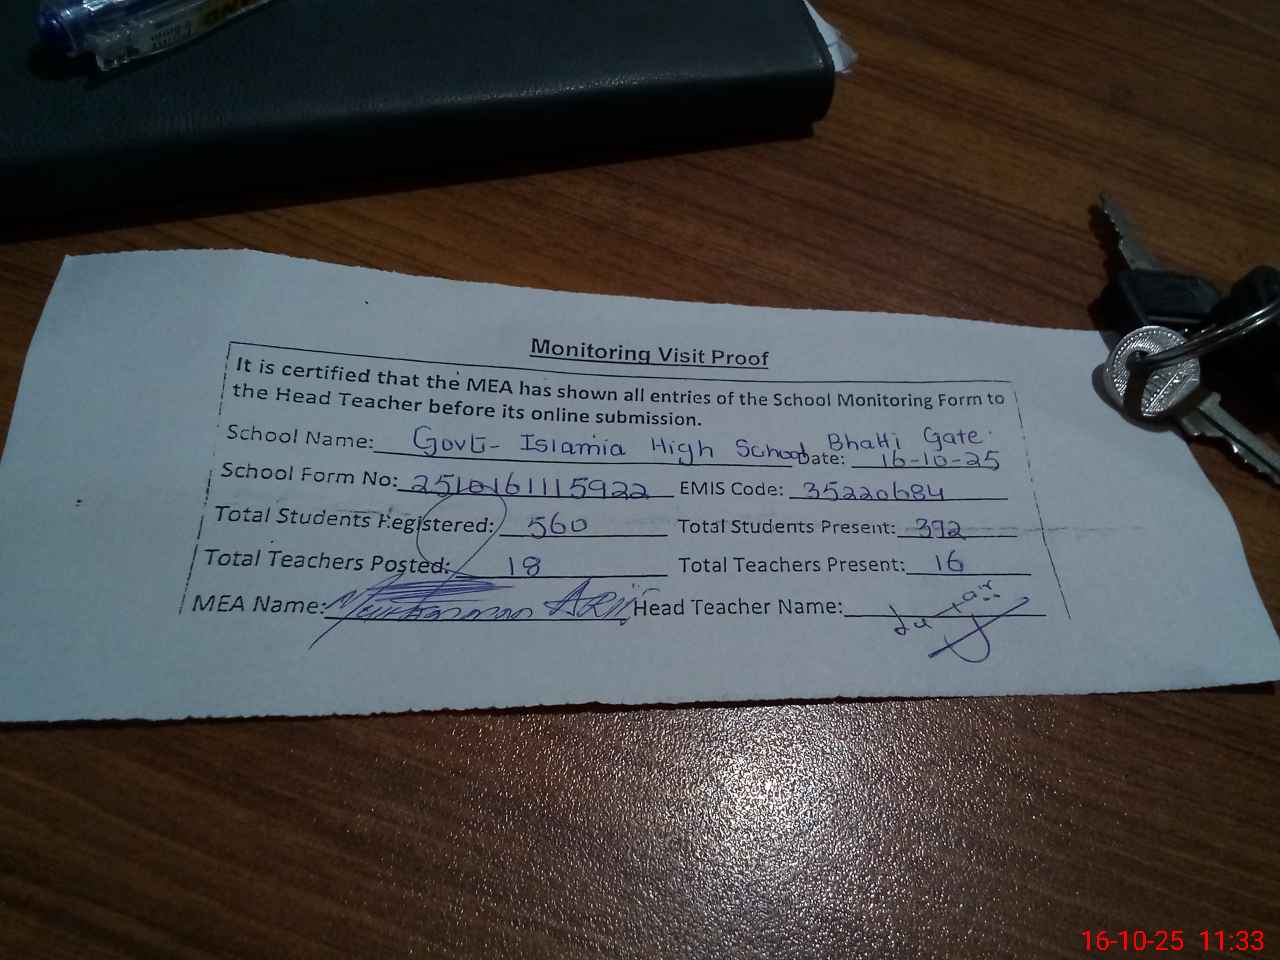 Monitoring Visit Proof
It is certified that the MEA has shown all entries of the School Monitoring Form to
the Head Teacher before its online submission.
School Name: Govt- Islamia High School Bhatti Gate. Date: 16-10-25
School Form No: 2510161115922 EMIS Code: 35220684
Total Students Registered: 560 Total Students Present: 392
Total Teachers Posted: 18 Total Teachers Present: 16
MEA Name: Head Teacher Name:
16-10-25 11:33